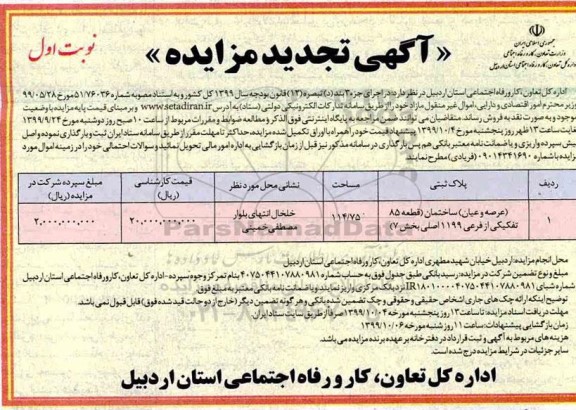 جمهوری اسلامی ایران
وزارت تعاون، کار و رفاه اجتماعی
اداره کل تعاون، کار و رفاه اجتماعی استان اردبیل
« آگهی تجدید مزایده »
نوبت اول
اداره کل تعاون، کار و رفاه اجتماعی استان اردبیل در نظر دارد در اجرای جزء ۲ بند (د) تبصره (۱۲) قانون بودجه سال ۱۳۹۹ کل کشور و به استناد مصوبه شماره ۵۱/۷۶۰۳۶ مورخ ۹۹/۰۵/۲۸
وزیر محترم امور اقتصادی و دارایی، اموال غیر منقول مازاد خود را از طریق سامانه تدارکات الکترونیکی دولتی (ستاد) به آدرس www.setadiran.ir و بر مبنای قیمت پایه مزایده با وضعیت
موجود و به صورت نقد به فروش رساند. متقاضیان می توانند ضمن مراجعه به پایگاه اینترنتی فوق الذکر و مطالعه ضوابط و مقررات مربوط از ساعت ۱۰ صبح روز دوشنبه مورخ ۱۳۹۹/۹/۲۴
لغایت ساعت ۱۳ ظهر روز پنجشنبه مورخ ۱۳۹۹/۱۰/۴ پیشنهاد قیمت خود را همراه با اوراق تکمیل شده مزایده، حداکثر تا مهلت مقرر از طریق سامانه ستاد ایران ثبت و بارگذاری نموده و اصل
فیش سپرده واریزی و یا ضمانت نامه معتبر بانکی هم پس بارگذاری در سامانه مذکور نیز قبل از زمان بازگشایی به اداره امور مالی تحویل نمایند و سوالات احتمالی خود را در زمینه اموال مورد
مزایده با شماره ۰۹۰۱۴۳۴۱۶۹۰ (فریادی) مطرح نمایند.
ردیف پلاک ثبتی مساحت نشانی محل مورد نظر قیمت کارشناسی (ریال) مبلغ سپرده شرکت در مزایده (ریال)
۱ (عرصه و عیان) ساختمان (قطعه ۸۵ تفکیکی از فرعی ۱۱۹۹ اصلی بخش ۷) ۱۱۴/۷۵ خلخال انتهای بلوار مصطفی خمینی ۲۰,۰۰۰,۰۰۰,۰۰۰ ۲,۰۰۰,۰۰۰,۰۰۰
محل انجام مزایده: اردبیل خیابان شهید مطهری اداره کل تعاون، کار و رفاه اجتماعی استان اردبیل
مبلغ و نوع تضمین شرکت در مزایده: رسید بانکی طبق جدول فوق به حساب شماره ۴۰۷۵۰۴۴۱۰۷۸۸۰۹۸۱ بنام تمرکز وجوه سپرده - اداره کل تعاون، کار و رفاه اجتماعی استان اردبیل
نزد بانک مرکزی واریز نمایند و یا ضمانت نامه بانکی معتبر به مبلغ فوق.
توضیح اینکه ارائه چک های جاری اشخاص حقیقی و حقوقی و چک تضمین شده بانکی و هر گونه تضمین دیگر (خارج از دو حالت قید شده فوق) قابل قبول نمی باشد.
مهلت دریافت اسناد مزایده: تا ساعت ۱۳ روز پنجشنبه مورخه ۱۳۹۹/۱۰/۰۴ صرفا از طریق سایت ستاد ایران
زمان بازگشایی پیشنهادات: ساعت ۱۱ روز شنبه مورخه ۱۳۹۹/۱۰/۰۶
هزینه های مربوط به آگهی و ثبت قرارداد در دفترخانه بر عهده برنده مزایده می باشد.
سایر جزئیات در شرایط مزایده درج شده است.
اداره کل تعاون، کار و رفاه اجتماعی استان اردبیل